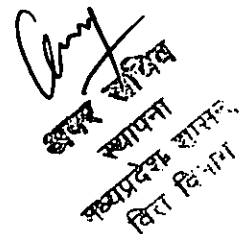 अवर सचिव
स्थापना
मध्यप्रदेश शासन,
वित्त विभाग